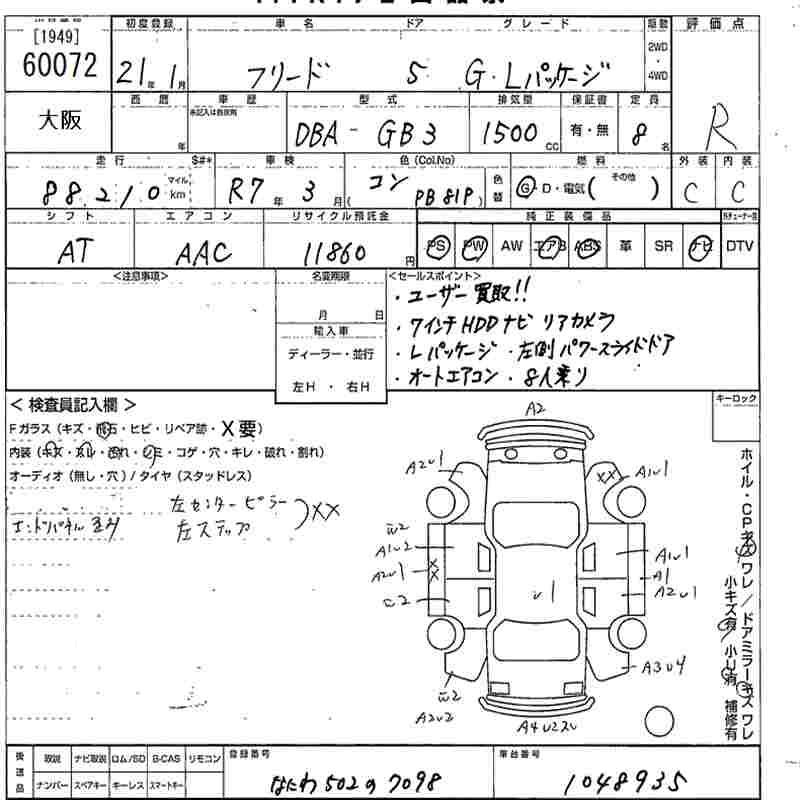 [1949]
60072
初度登録
21年1月
車名 ドア グレード
フリード 5 G・Lパッケージ
駆動
2WD
・
4WD
評価点
R
大阪
西暦
年
車歴
未記入は自家用
型式
DBA - GB3
排気量
1500 CC
保証書
有・無
定員
8名
走行 $#*
88,210 マイル km
車検
R7年3月
色(Col.No)
コン
(PB81P)
色替
燃料
G・D・電気( その他 )
外装
C
内装
C
シフト
AT
エアコン
AAC
リサイクル預託金
11860円
純正装備品
PS PW AW エアB ABS 革 SR ナビ
DTV
<注意事項>
名変期限
月 日
輸入車
ディーラー・並行
左H・右H
<セールスポイント>
・ユーザー買取!!
・7インチHDDナビ リアカメラ
・Lパッケージ・左側パワースライドドア
・オートエアコン・8人乗り
<検査員記入欄>
Fガラス(キズ・飛石・ヒビ・リペア跡・X要)
内装(キズ・ヨレ・汚れ・シミ・コゲ・穴・キレ・破れ・割れ)
オーディオ(無し・穴)/タイヤ(スタッドレス)
左センターピラー
左ステップ
XX
キーロック
A2
A2U1
A1U1
XX
W2
A1U2
A2U1
XX
C2
A1U1
A1
A2U1
U1
W2
A2U2
A3U4
ホイル・CPキズワレ/ドアミラーキズワレ
小キズ有/小U有 補修有
後送品
取説 ナビ取説 ロム/SD B-CAS リモコン
ナンバー スペアキー キーレス スマートキー
登録番号
なにわ502の7098
車台番号
1048935